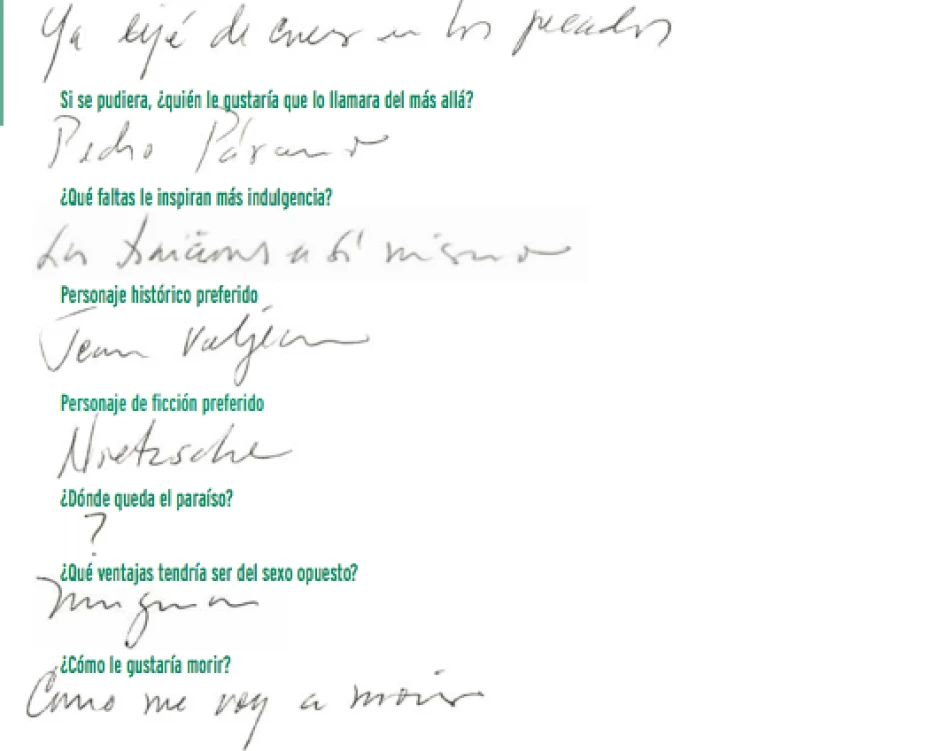 Ya dejé de creer en los pecados
Si se pudiera, ¿quién le gustaría que lo llamara del más allá?
Pedro Páramo
¿Qué faltas le inspiran más indulgencia?
Las traiciones a sí mismo
Personaje histórico preferido
Jean Valjean
Personaje de ficción preferido
Nietzsche
¿Dónde queda el paraíso?
?
¿Qué ventajas tendría ser del sexo opuesto?
Ninguna
¿Cómo le gustaría morir?
Como me voy a morir